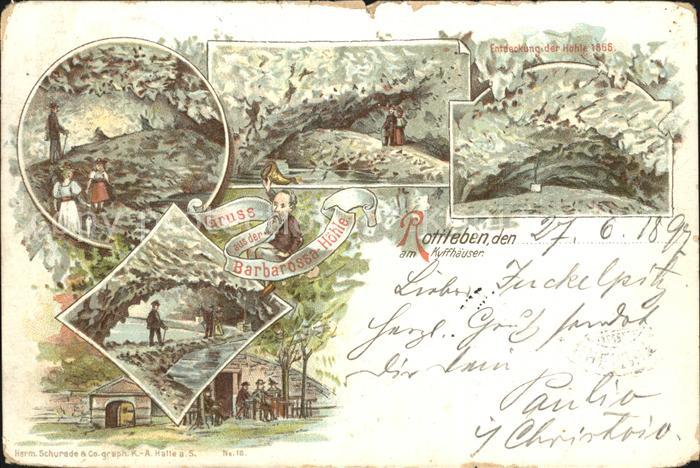 Entdeckung der Höhle 1865.
Gruss
aus der
Barbarossa Höhle
Rottleben, den 27. 6. 1897
am Kyffhäuser.
Lieber
Herzl. Gruß sendet
Dir Dein
Herm. Schurade & Co. graph. K.-A. Halle a. S. No. 18.